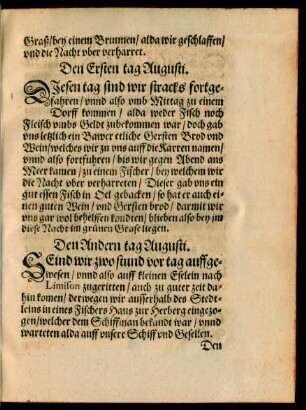 Graß/bey einem Brunnen/ alda wir geschlaffen/
vnd die Nacht vber verharret.
Den Ersten tag Augusti.
DIesen tag sind wir stracks fortge-
fahren/ vnnd also vmb Mittag zu einem
Dorff kommen/ alda weder Fisch noch
Fleisch vmbs Geldt zubekommen war/ doch gab
vns letzlich ein Bawer etliche Gersten Brod vnd
Wein/welches wir zu vns auff die Karren namen/
vnnd also fortfuhren/ bis wir gegen Abend ans
Meer kamen/ zu einem Fischer/ bey welchem wir
die Nacht vber verharreten/ Dieser gab vns ein
gut essen Fisch in Oel gebacken/ so hat er auch ei-
nen guten Wein/ vnd Gersten brod/ darmit wir
vns gar wol behelffen kondten/ blieben also bey jm
diese Nacht im grünen Grase liegen.
Den Andern tag Augusti.
SEind wir zwo stund vor tag auffge-
wesen/ vnnd also auff kleinen Eselein nach
Limison zugeritten/ auch zu guter zeit da-
hin komen/ derwegen wir ausserhalb des Stedt-
leins in eines Fischers Haus zur Herberg eingezo-
gen/welcher dem Schiffman bekandt war/ vnnd
warteten alda auff vnsere Schiff vnd Gesellen.
Den